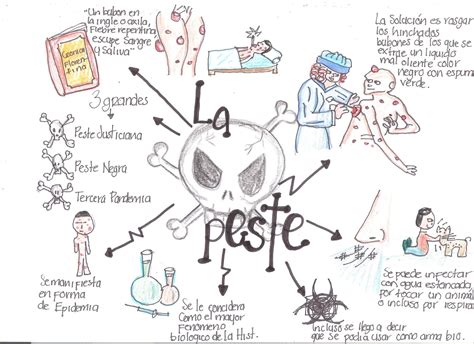 "Un bubón en
la ingle o axila,
Fiebre repentina
escupe Sangre
y Saliva"
Cronica
Florentina
La Solución es rasgar
los hinchados
bubones de los que se
extrae un liquido
mal oliente color
negro con espuma
verde.
La
peste
3 grandes
Peste Justiciana
Peste Negra
Tercera Pandemia
Se manifiesta
en forma
de Epidemia
Se le considera
Como el mayor
Fenomeno
biologico de la Hist.
Incluso se llego a decir
que se podria usar como arma bio.
Se puede infectar
con agua estancada,
por tocar un animal
o incluso por respirar